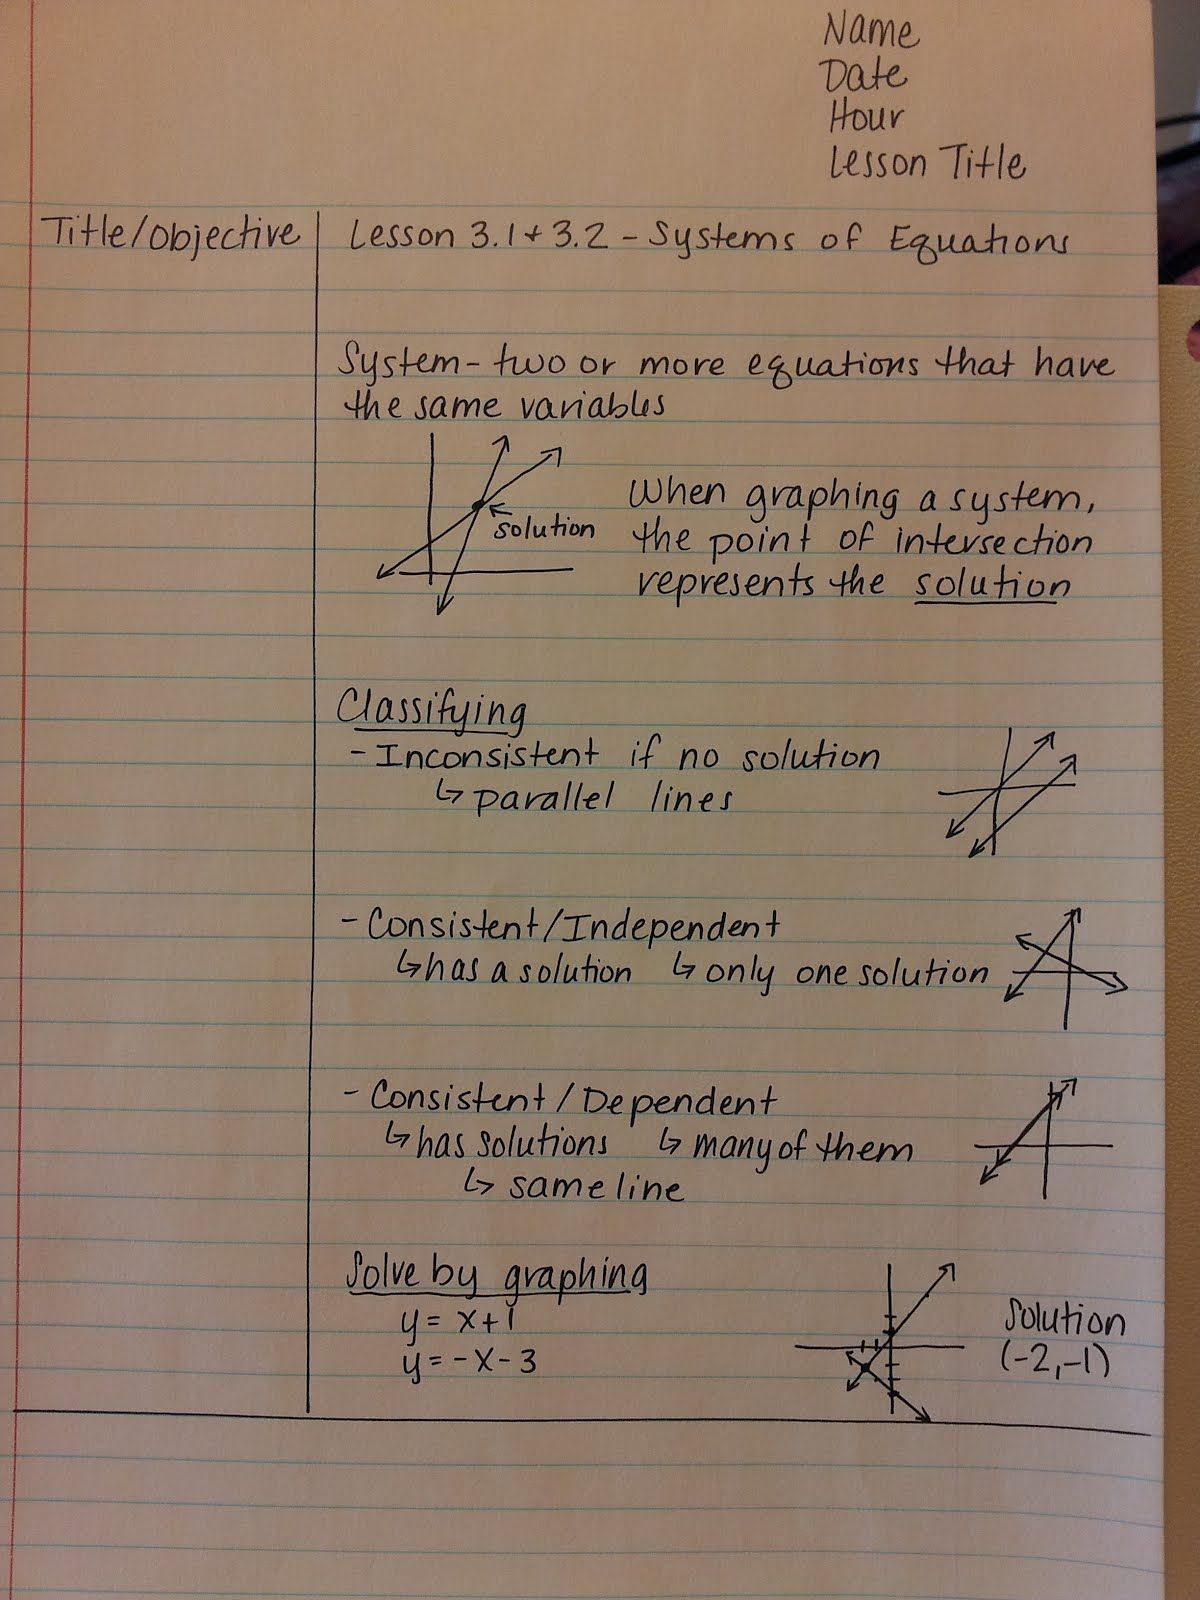 Name
Date
Hour
Lesson Title
Title/objective
Lesson 3.1 + 3.2 - Systems of Equations
System - two or more equations that have
the same variables
solution
When graphing a system,
the point of intersection
represents the solution
Classifying
- Inconsistent if no solution
↳ parallel lines
- Consistent/Independent
↳ has a solution ↳ only one solution
- Consistent/Dependent
↳ has solutions ↳ many of them
↳ same line
Solve by graphing
y = x+1
y = -x-3
Solution
(-2,-1)